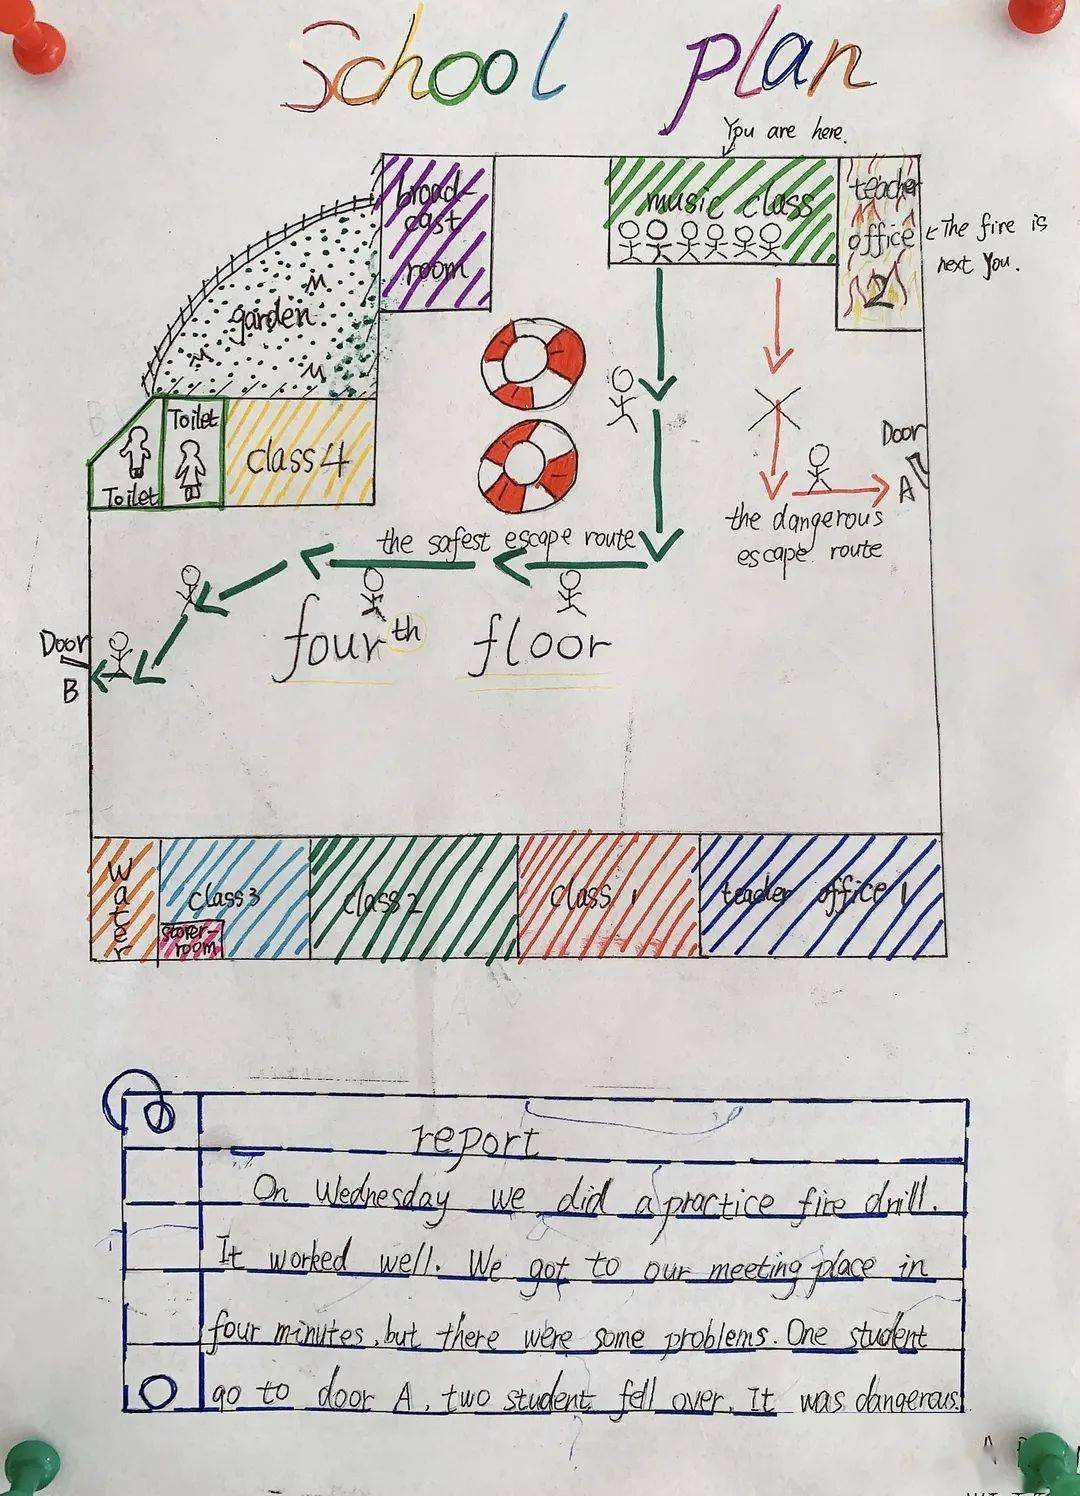 School plan
You are here.
broad-
cast
room
music class
teacher
office
2
The fire is
next You.
garden
Toilet
Toilet
class4
Door
A
the dangerous
escape route
the safest escape route
fourth floor
Door
B
water
class3
storer-
room
class2
class 1
teacher office 1
report
On Wednesday we did a practice fire drill.
It worked well. We got to our meeting place in
four minutes, but there were some problems. One student
go to door A, two student fell over. It was dangerous.